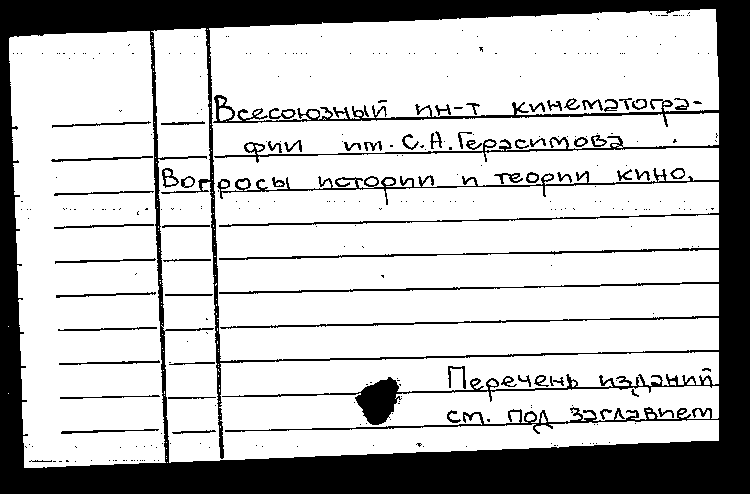 Всесоюзный ин-т кинематогра-
фии им. С.А.Герасимова
Вопросы истории и теории кино.
Перечень изданий
см. под заглавием